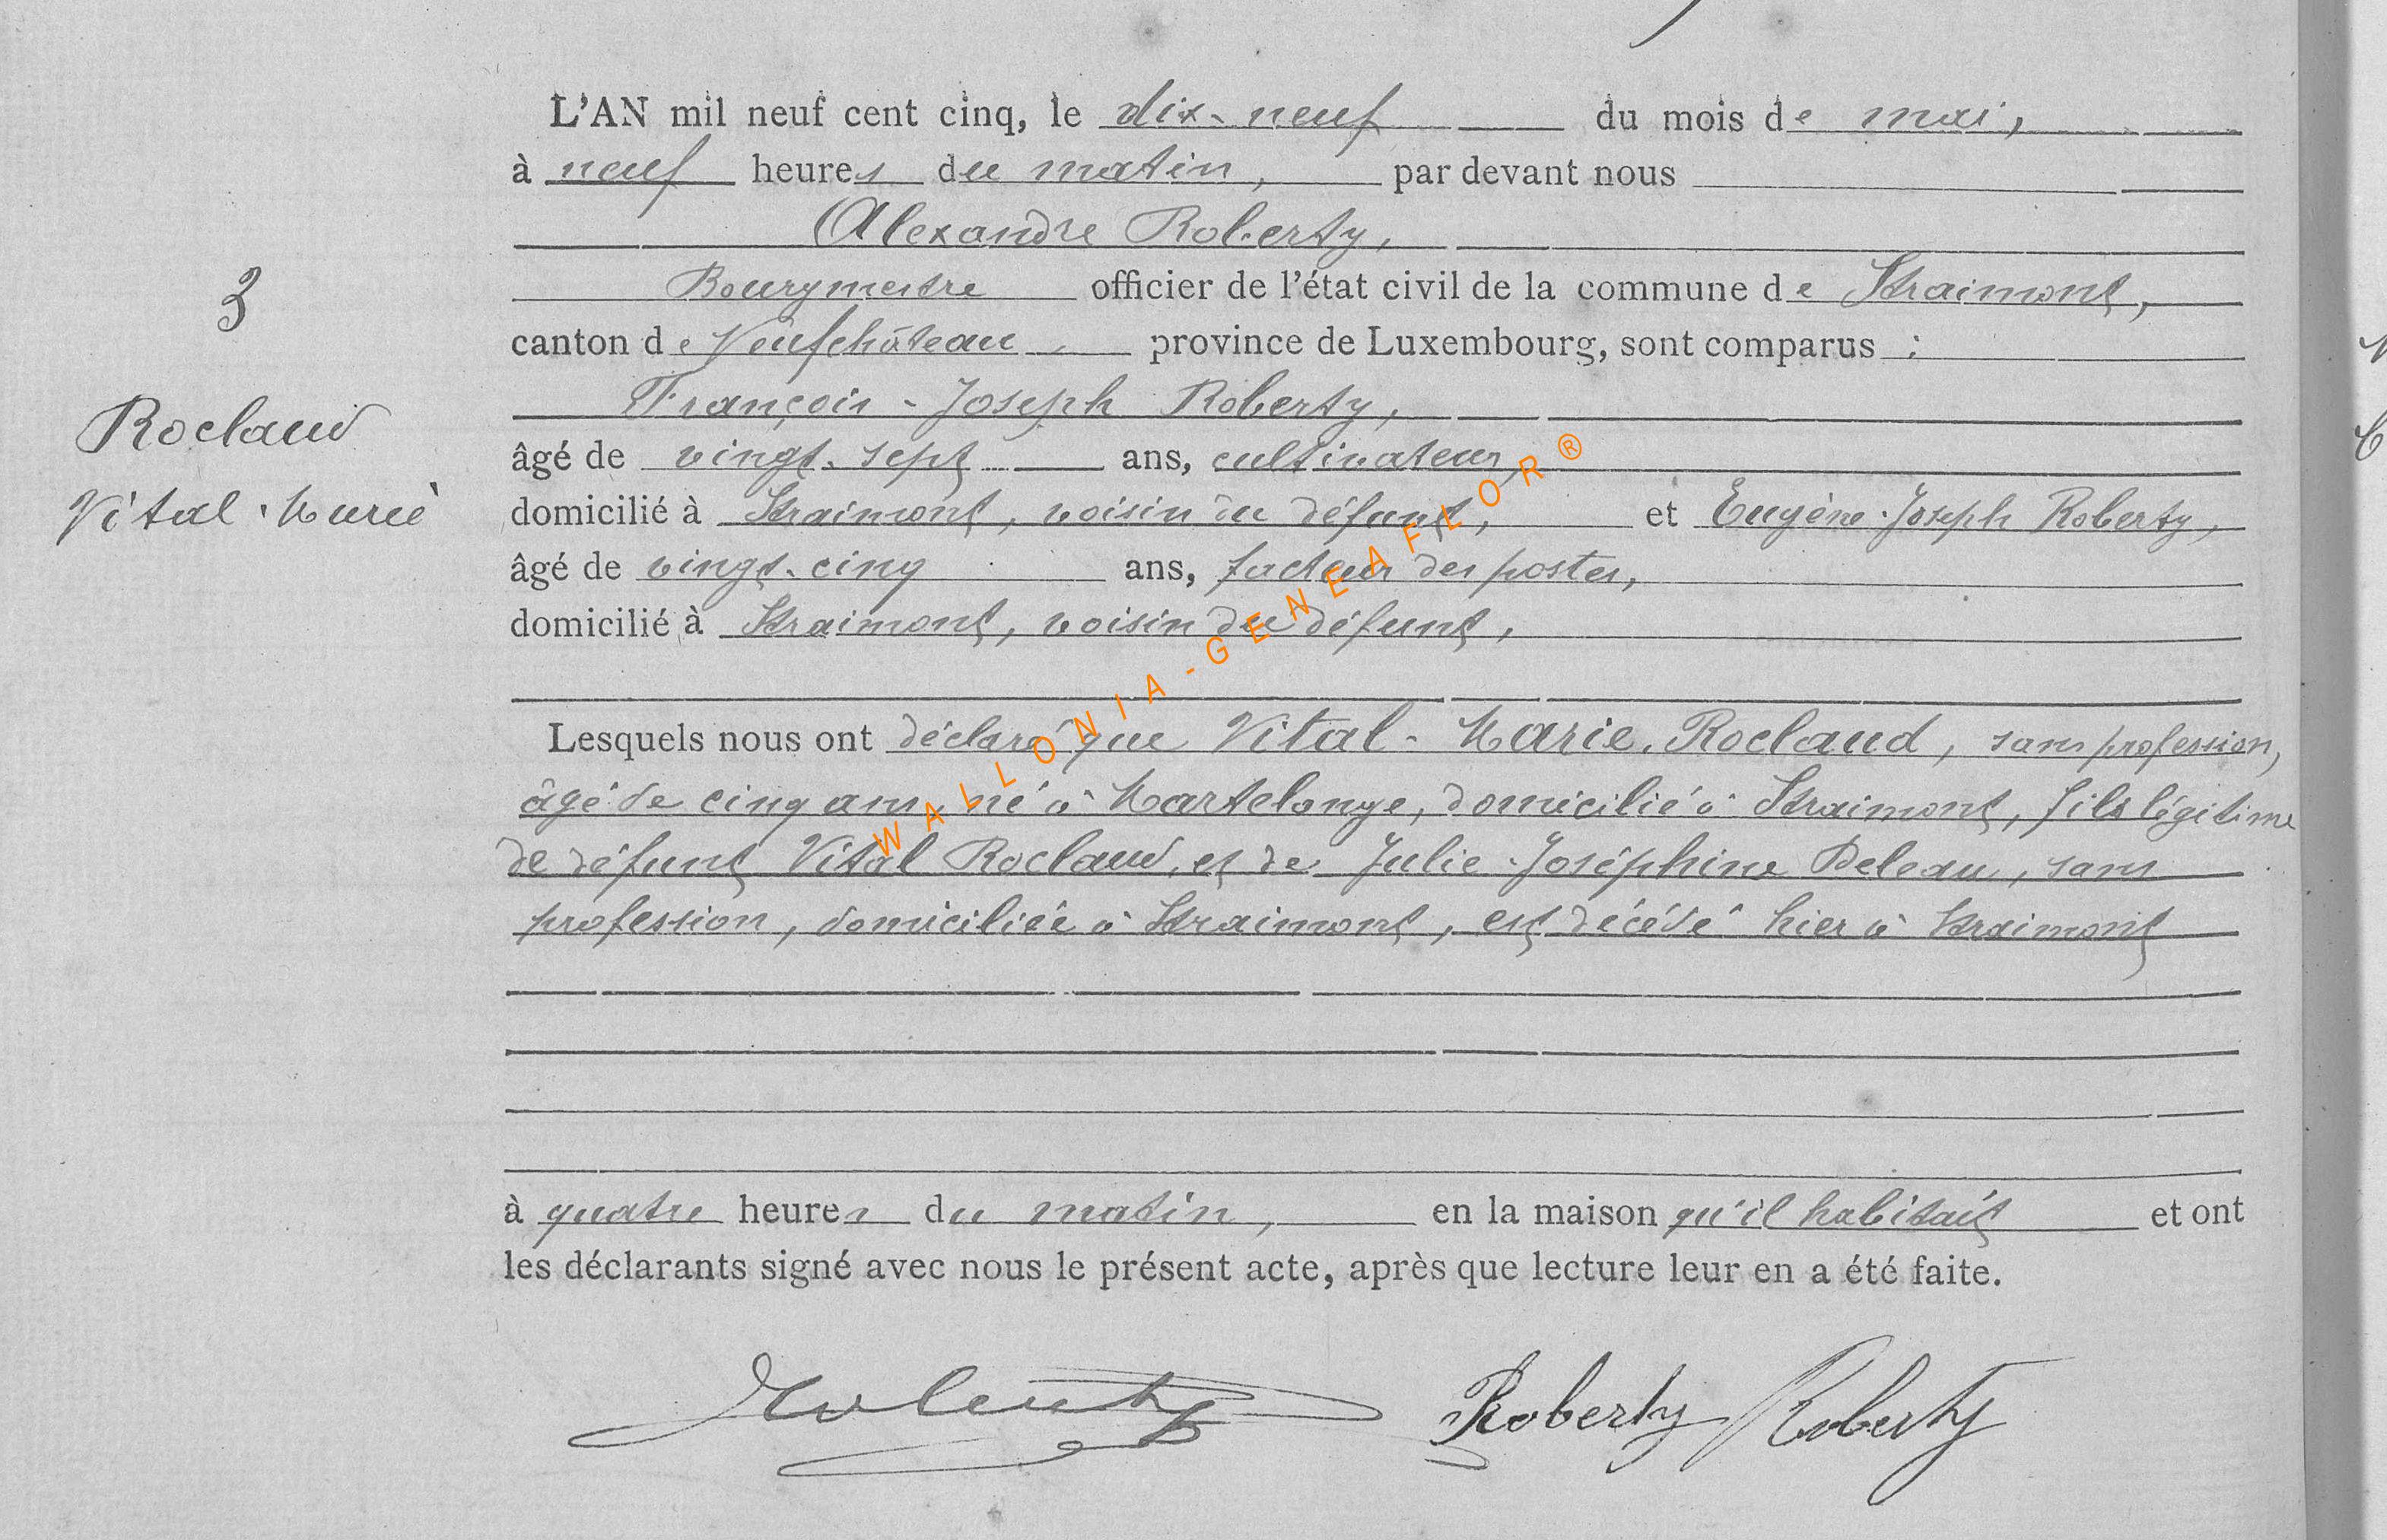 L'AN mil neuf cent cinq, le dix-neuf du mois de mai,
à neuf heures du matin, par devant nous
Alexandre Roberty,
Bourgmestre officier de l'état civil de la commune de Straimont,
3
canton de Neufchâteau province de Luxembourg, sont comparus :
François-Joseph Roberty,
Roclaud
âgé de vingt-sept ans, cultivateur,
Vital-Marie
domicilié à Straimont, voisin du défunt, et Eugène-Joseph Roberty,
âgé de vingt-cinq ans, facteur des postes,
domicilié à Straimont, voisin du défunt,
Lesquels nous ont déclaré que Vital-Marie Roclaud, sans profession,
âgé de cinq ans, né à Martelange, domicilié à Straimont, fils légitime
de défunt Vital Roclaud, et de Julie-Joséphine Deleau, sans
profession, domiciliée à Straimont, est décédé hier à Straimont
à quatre heures du matin, en la maison qu'il habitait et ont
les déclarants signé avec nous le présent acte, après que lecture leur en a été faite.
Roberty Roberty
WALLONIA-GENEAFLOR®